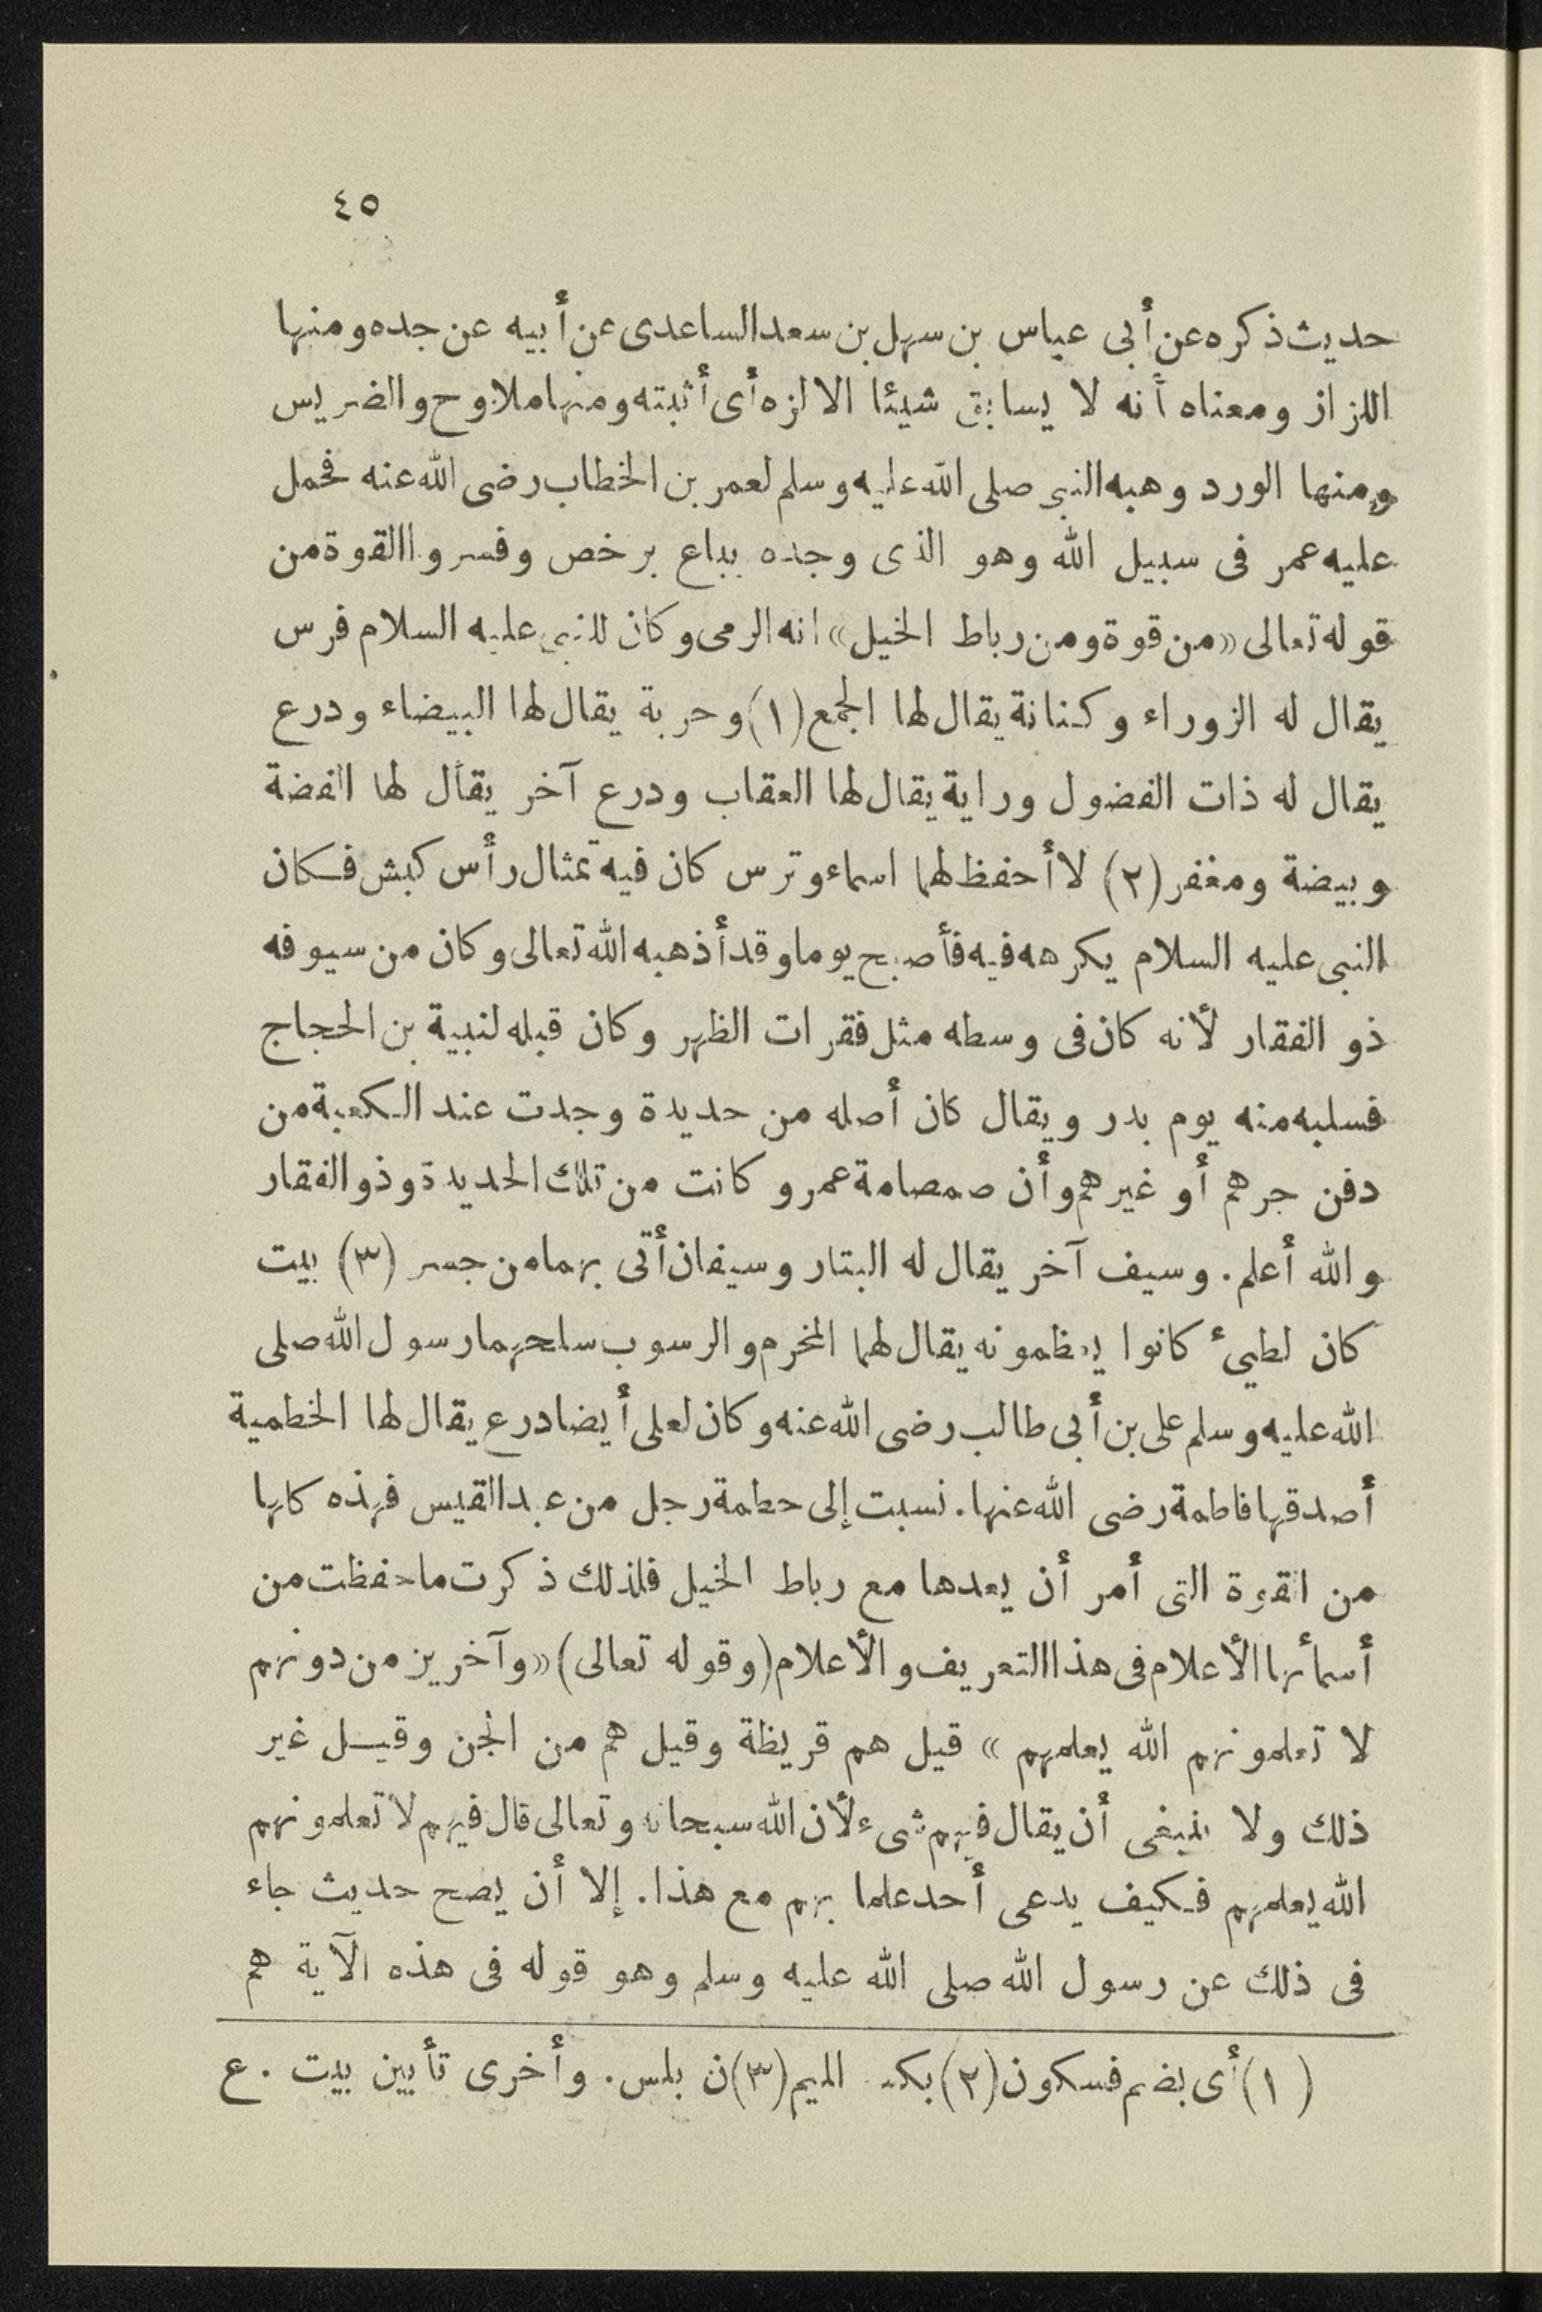 ٤٥
حديث ذكره عن أبى عباس بن سهل بن سعد الساعدى عن أبيه عن جده ومنها
اللزاز ومعناه أنه لا يسابق شيئا الا لزه أى أثبته ومنها ملاوح والضريس
ومنها الورد وهبه النبى صلى الله عليه وسلم لعمر بن الخطاب رضى الله عنه فحمل
عليه عمر فى سبيل الله وهو الذى وجده يباع برخص وفسروا القوة من
قوله تعالى «من قوة ومن رباط الخيل» انه الرمى وكان للنبى عليه السلام فرس
يقال له الزوراء وكنانة يقال لها الجمع (١) وحربة يقال لها البيضاء ودرع
يقال له ذات الفضول وراية يقال لها العقاب ودرع آخر يقال لها الفضة
وبيضة ومغفر (٢) لا أحفظ لهما اسماء وترس كان فيه تمثال رأس كبش فكان
النبى عليه السلام يكرهه فيه فأصبح يوما وقد أذهبه الله تعالى وكان من سيوفه
ذو الفقار لأنه كان فى وسطه مثل فقرات الظهر وكان قبله لنبية بن الحجاج
فسلبه منه يوم بدر ويقال كان أصله من حديدة وجدت عند الكعبة من
دفن جرهم أو غيرهم وأن صمصامة عمرو كانت من تلك الحديدة وذو الفقار
والله أعلم. وسيف آخر يقال له البتار وسيفان أتى بهما من جسر (٣) بيت
كان لطيىء كانوا يعظمونه يقال لهما المخرم والرسوب سلحهما رسول الله صلى
الله عليه وسلم على بن أبى طالب رضى الله عنه وكان لعلى أيضا درع يقال لها الخطمية
أصدقها فاطمة رضى الله عنها. نسبت إلى حطمة رجل من عبد القيس فهذه كلها
من القوة التى أمر أن يعدها مع رباط الخيل فلذلك ذكرت ما حفظت من
أسمائها الأعلام فى هذا التعريف والأعلام (وقوله تعالى) «وآخرين من دونهم
لا تعلمونهم الله يعلمهم» قيل هم قريظة وقيل هم من الجن وقيل غير
ذلك ولا ينبغى أن يقال فيهم شىء لأن الله سبحانه وتعالى قال فيهم لا تعلمونهم
الله يعلمهم فكيف يدعى أحد علما بهم مع هذا. إلا أن يصح حديث جاء
فى ذلك عن رسول الله صلى الله عليه وسلم وهو قوله فى هذه الآية هم
(١) أى بضم فسكون (٢) بكسر الميم (٣) ن بلس. وأخرى تأيين بيت . ع